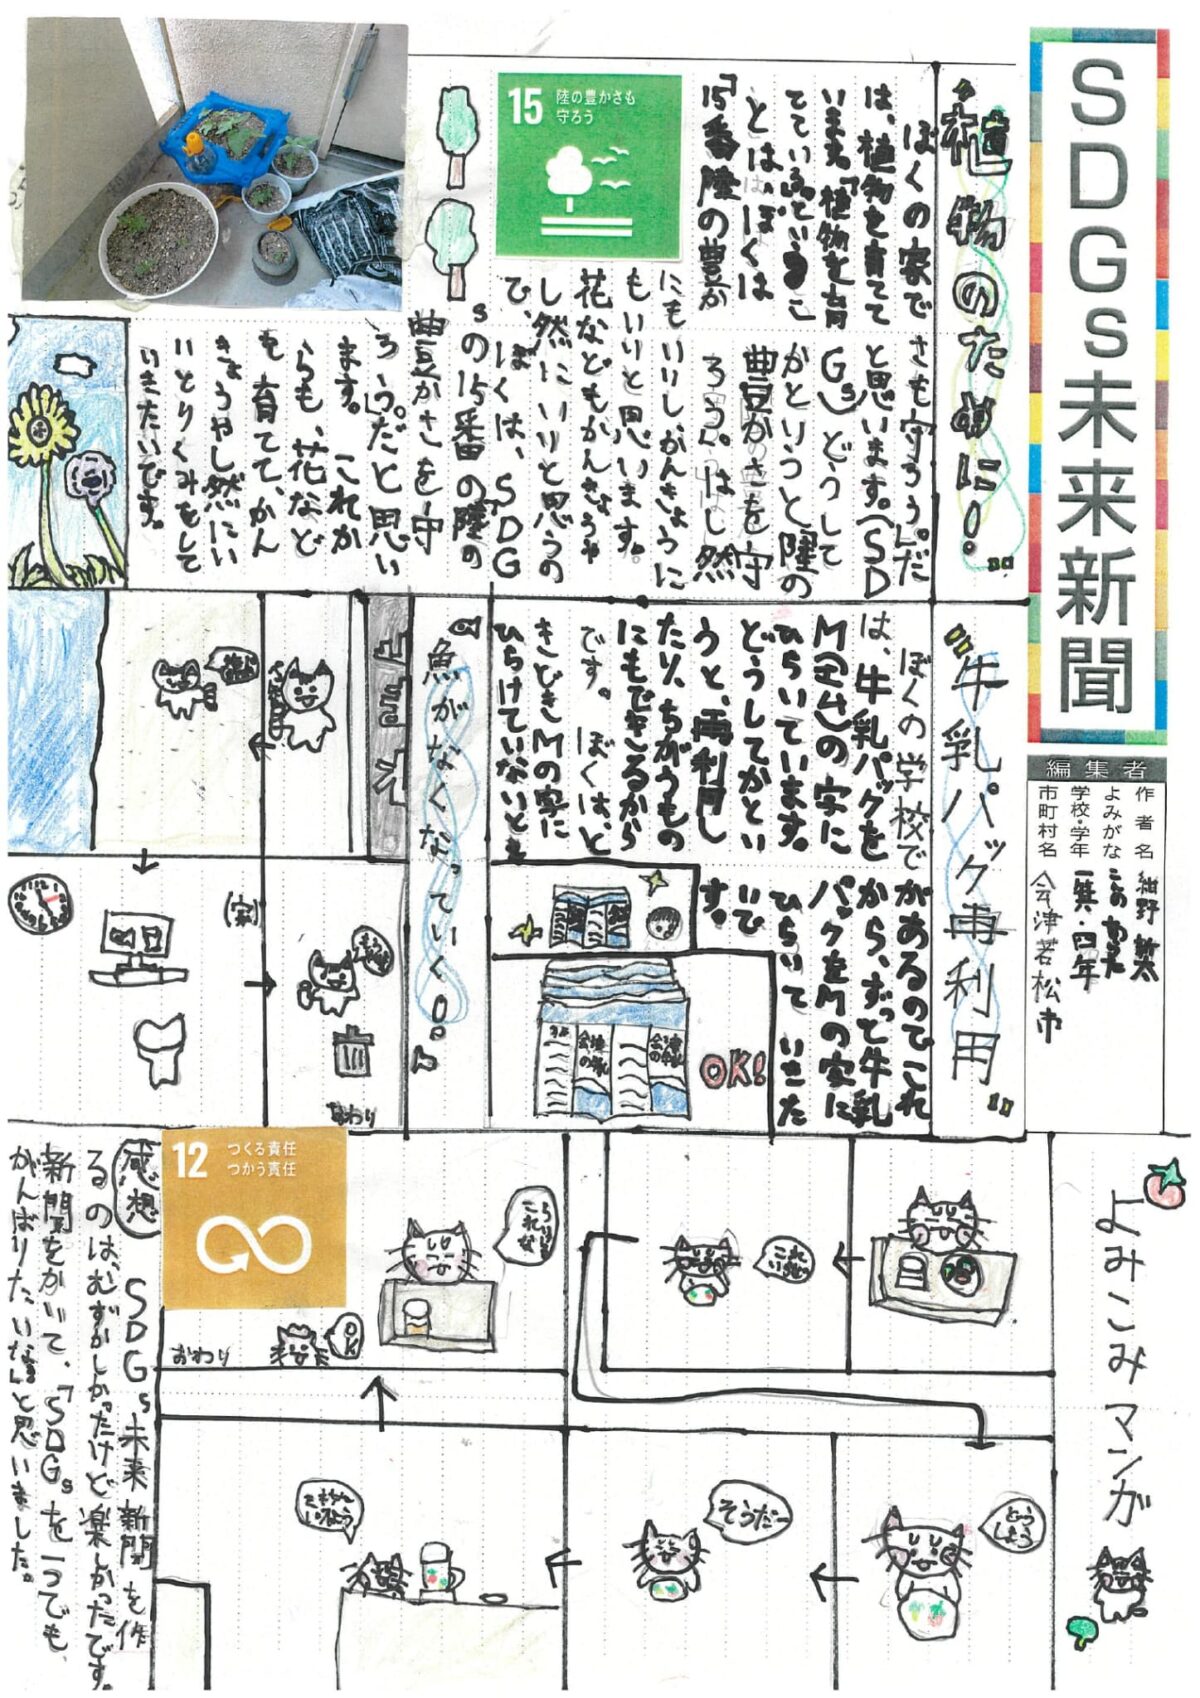 SDGs未来新聞
編集者
作者名 紺野 
よみがな こんの
学校・学年 四年
市町村名 会津若松市
植物のために!
ぼくの家で
は、植物を育てて
います。「植物を育
てている。」というこ
とは、ぼくは
「15番陸の豊か
さも守ろう。」だ
と思います。(SD
Gs)どうして
かというと、「陸の
豊かさを守
ろう。」は、し然
にもいいし、かんきょうに
もいいと思います。
花などもかんきょうや
し然にいいと思うの
で、ぼ
くは、SDG
sの15番の「陸の
豊かさを守
ろう。」だと思い
ます。これか
らも、花など
を育てて、かん
きょうやし然にい
いとりくみをして
いきたいです。
15 陸の豊かさも
守ろう
"牛乳パック再利用"
ぼくの学校で
は、牛乳パックを
の字に
ひらいています。
どうしてかとい
うと、再利用し
たり、ちがうもの
にもできるから
です。ぼくは、と
きどきMの字に
ひらけていないとき
があるのでこれ
から、ずっと牛乳
パックをMの字に
ひらいていきた
いで
す。
会津の牛乳
会津の牛乳
OK!
魚がなくなっていく。
(家)
おわり
よみこみマンガ
これ
どう
しよう
そうだ
OK
おわり
12 つくる責任
つかう責任
感想
SDGs未来新聞を作
るのは、むずかしかったけど楽しかったです。
新聞をかいて、「SDGsを1つでも、
がんばりたいな。」と思いました。